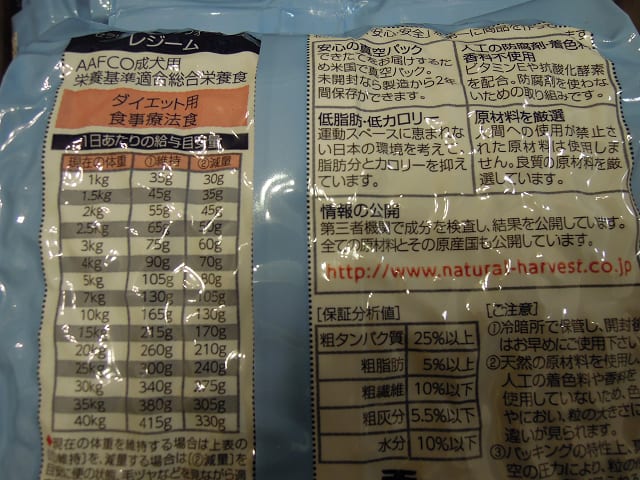 レジーム
AAFCO成犬用
栄養基準適合総合栄養食
ダイエット用
食事療法食
1日あたりの給与目安量
現在の体重 ①維持 ②減量
1kg 35g 30g
1.5kg 45g 35g
2kg 55g 45g
2.5kg 65g 50g
3kg 75g 60g
4kg 90g 70g
5kg 105g 80g
7kg 130g 105g
10kg 165g 130g
15kg 215g 170g
20kg 260g 210g
25kg 300g 240g
30kg 340g 275g
35kg 380g 305g
40kg 415g 330g
現在の体重を維持する場合は上表の
維持]を、減量する場合は[②減量]を
安心の真空パック
できたてをお届けするた
め米国で真空パック。
未開封なら製造から2年
間保存ができます。
人工の防腐剤・着色料・
香料不使用
ビタミンEや抗酸化酵素
を配合。防腐剤を使わな
いための取り組みです。
低脂肪・低カロリー
運動スペースに恵まれな
い日本の環境を考え、
脂肪分とカロリーを抑え
ています。
原材料を厳選
人間への使用が禁止さ
れた原材料は使用しま
せん。良質の原材料を厳
選しています。
情報の公開
第三者機関で成分を検査し、結果を公開しています。
全ての原材料とその原産国も公開しています。
http://www.natural-harvest.co.jp
[保証分析値]
粗タンパク質 25%以上
粗脂肪 5%以上
粗繊維 10%以下
粗灰分 5.5%以下
水分 10%以下
[ご注意]
①冷暗所で保管し、開封後
はお早めにご使用下さい
②天然の原材料を使用し
人工の着色料や香料を
使用していないため、色
やにおい、粒の大きさに
違いが見られます。
③パッキングの特性上、真
空の圧力により、粒の